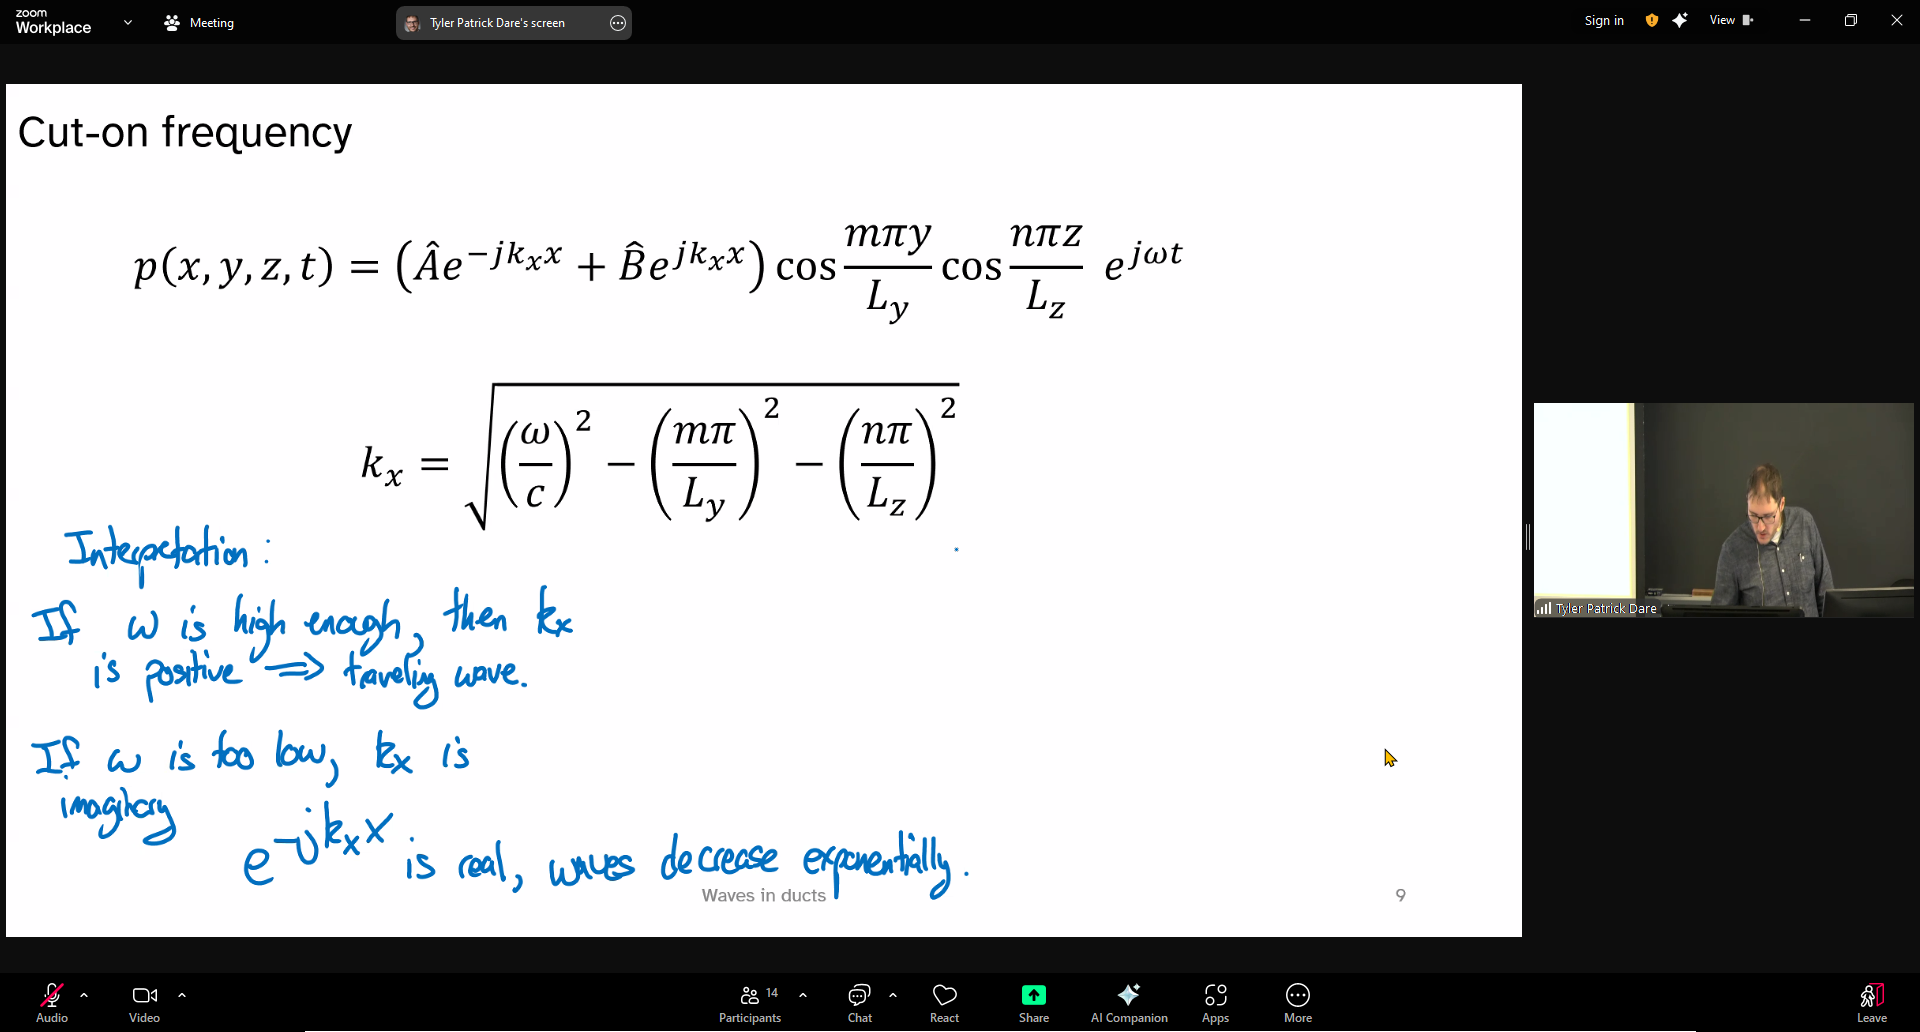 zoom
Workplace
Meeting
Tyler Patrick Dare's screen
Sign in
View
Cut-on frequency
p(x, y, z, t) = (Âe^{-jk_x x} + B̂e^{jk_x x}) cos \frac{mπy}{L_y} cos \frac{nπz}{L_z} e^{jωt}
k_x = \sqrt{(\frac{ω}{c})^2 − (\frac{mπ}{L_y})^2 − (\frac{nπ}{L_z})^2}
Interpretation:
If ω is high enough, then k_x
is positive ⟹ traveling wave.
If ω is too low, k_x is
imaginary
e^{-jk_x x} is real, waves decrease exponentially.
Waves in ducts
9
Tyler Patrick Dare
Audio
Video
Participants
14
Chat
React
Share
AI Companion
Apps
More
Leave